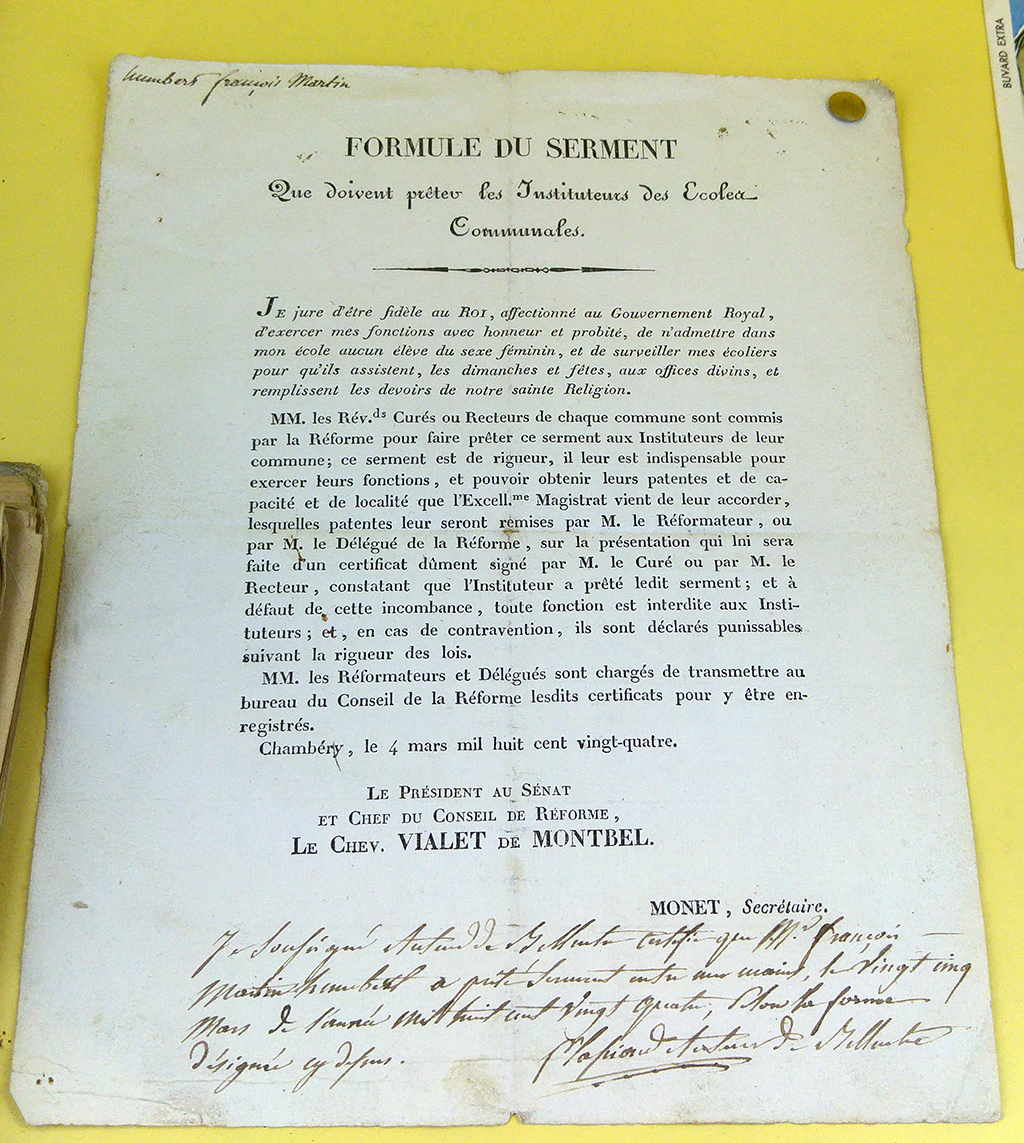 humbert françois Martin
BUVARD EXTRA
FORMULE DU SERMENT
Que doivent prêter les Instituteurs des Ecoles
Communales.
JE jure d'être fidèle au ROI, affectionné au Gouvernement Royal,
d'exercer mes fonctions avec honneur et probité, de n'admettre dans
mon école aucun élève du sexe féminin, et de surveiller mes écoliers
pour qu'ils assistent, les dimanches et fêtes, aux offices divins, et
remplissent les devoirs de notre sainte Religion.
MM. les Rév.ds Curés ou Recteurs de chaque commune sont commis
par la Réforme pour faire prêter ce serment aux Instituteurs de leur
commune; ce serment est de rigueur, il leur est indispensable pour
exercer leurs fonctions, et pouvoir obtenir leurs patentes et de ca-
pacité et de localité que l'Excell.me Magistrat vient de leur accorder,
lesquelles patentes leur seront remises par M. le Réformateur, ou
par M. le Délégué de la Réforme, sur la présentation qui lni sera
faite d'un certificat dûment signé par M. le Curé ou par M. le
Recteur, constatant que l'Instituteur a prêté ledit serment; et à
défaut de cette incombance, toute fonction est interdite aux Insti-
tuteurs; et, en cas de contravention, ils sont déclarés punissables
suivant la rigueur des lois.
MM. les Réformateurs et Délégués sont chargés de transmettre au
bureau du Conseil de la Réforme lesdits certificats pour y être en-
registrés.
Chambéry, le 4 mars mil huit cent vingt-quatre.
LE PRÉSIDENT AU SÉNAT
ET CHEF DU CONSEIL DE RÉFORME,
LE CHEV. VIALET DE MONTBEL.
MONET, Secrétaire.
Je soussigné de certifie que françois
Martin humbert a prêté serment entre mes mains, le vingt cinq
Mars de l'année mil huit cent vingt quatre, selon la forme
désignée cy dessus.